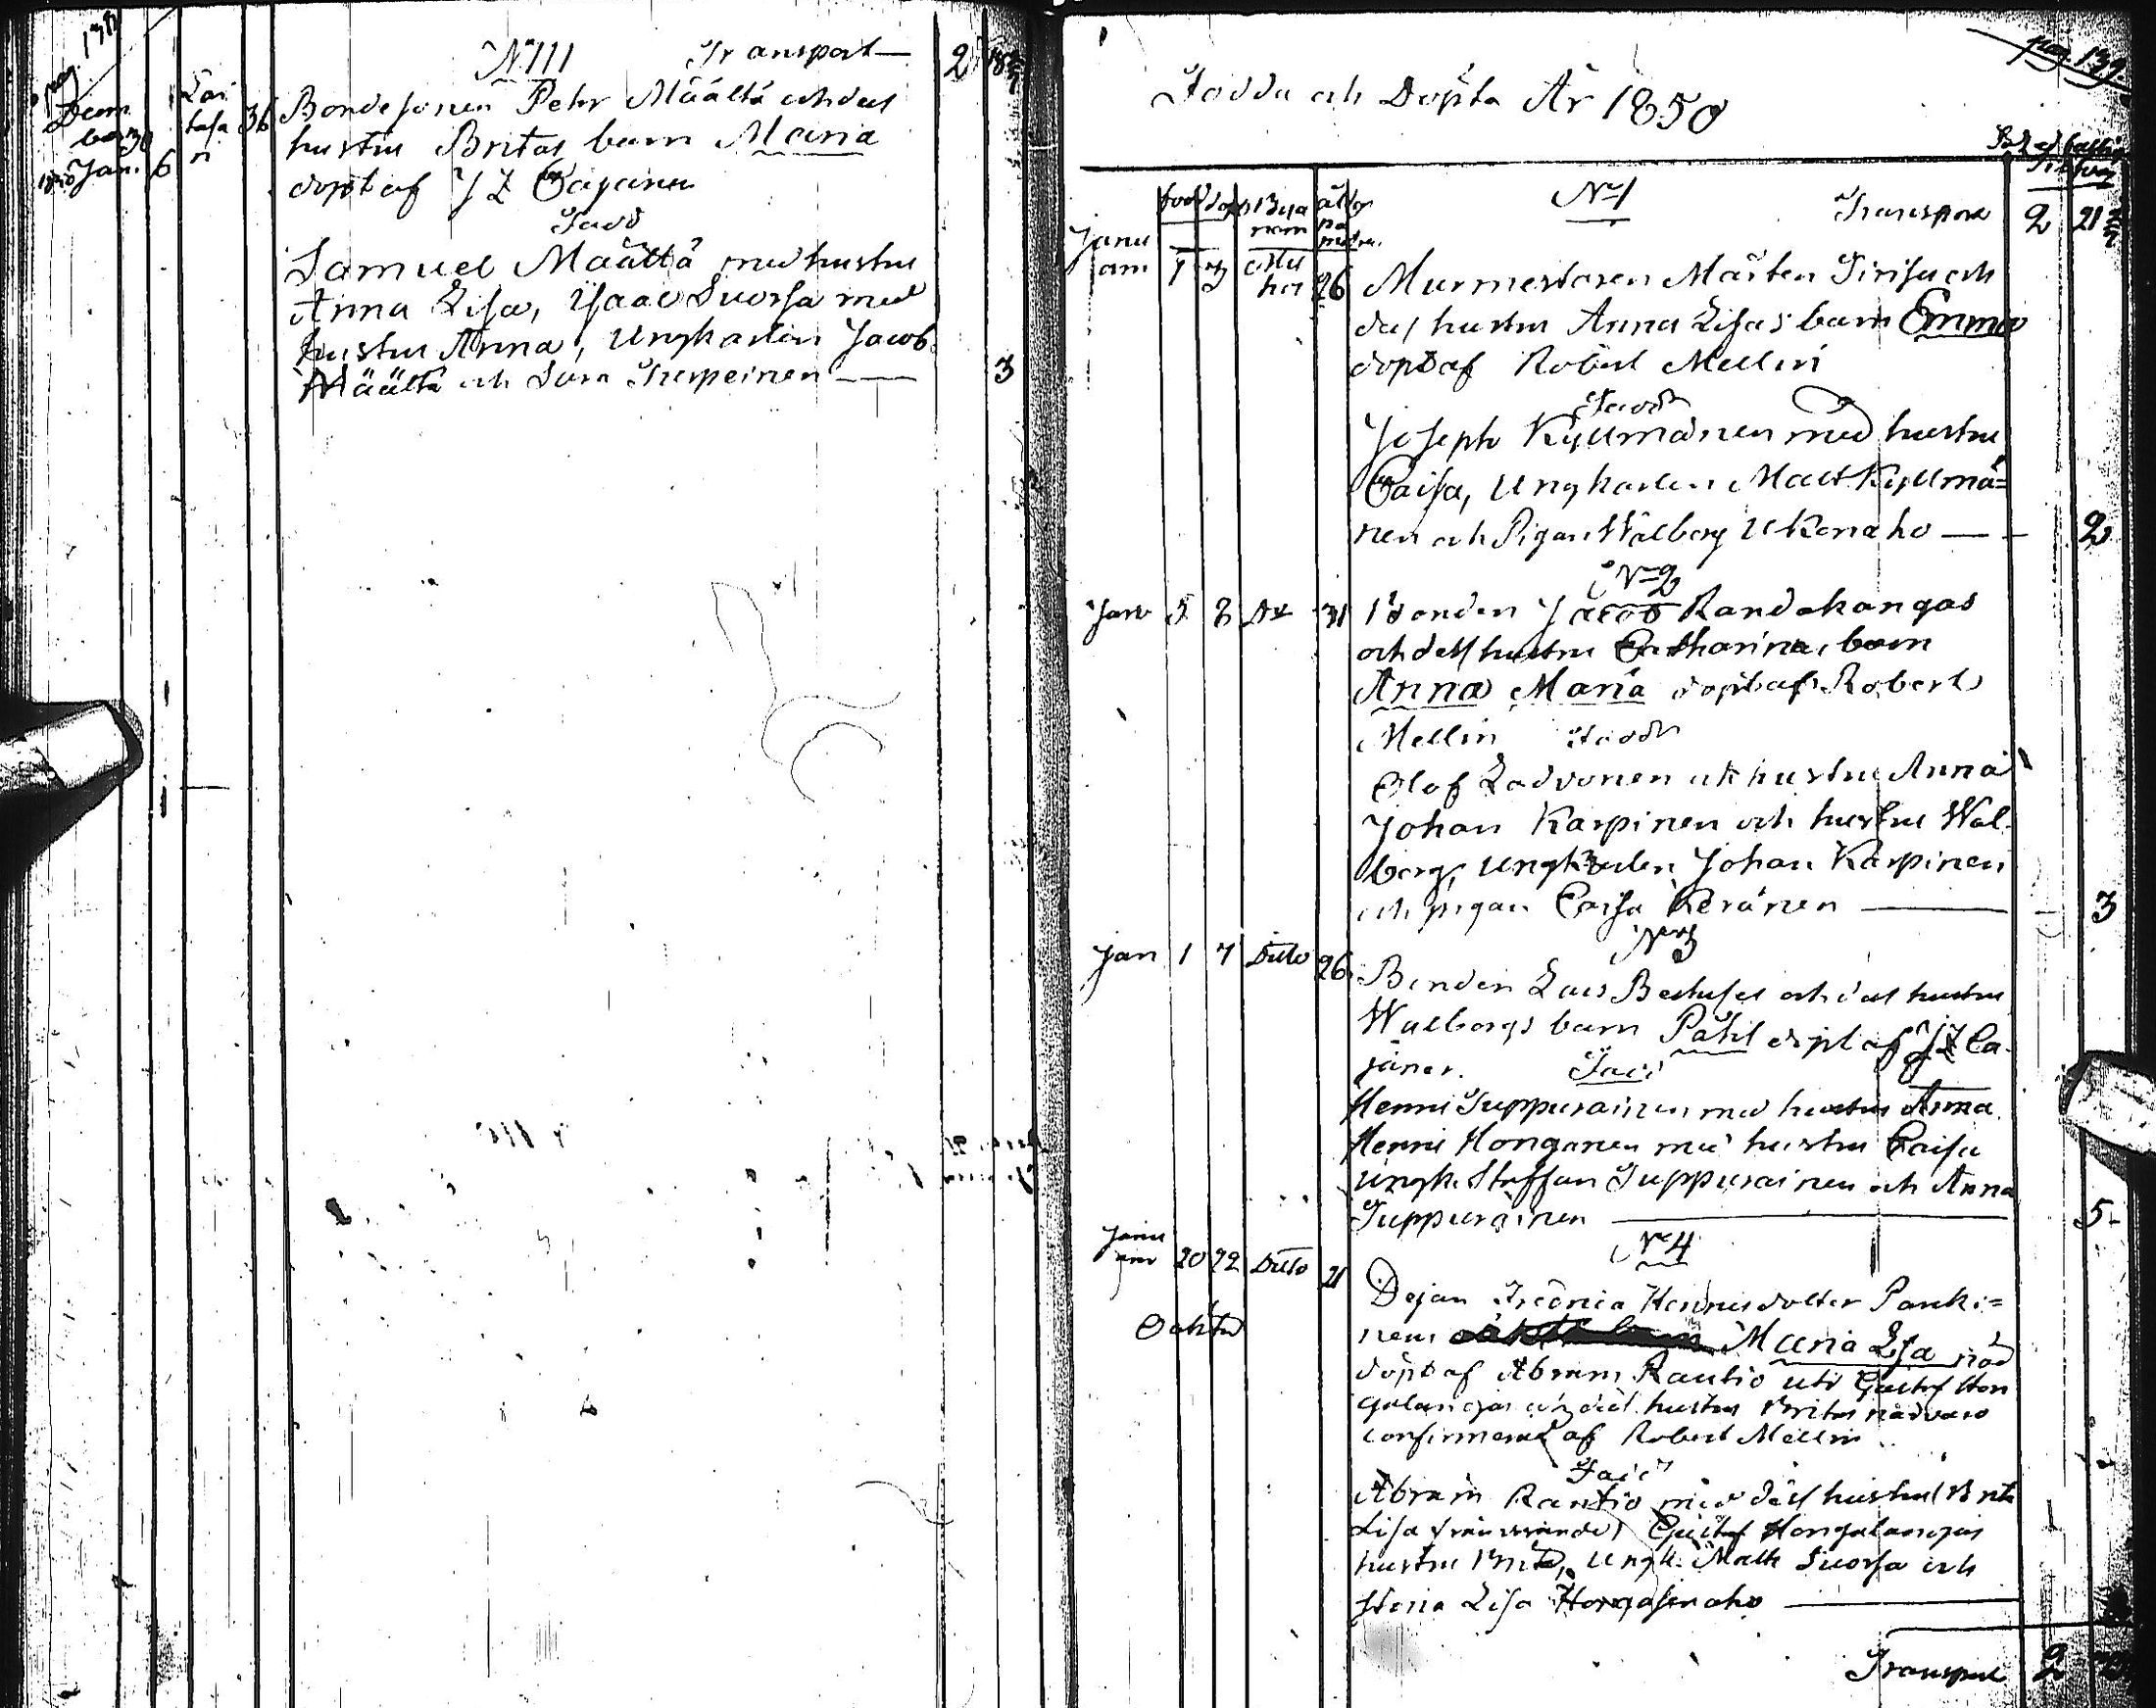 pag. 138
N 111 Transport — 2
Decem
ber 30
1850 Jan. 6
36 Bondesonen Pehr Määttä och des
hustru Britas barn Maria
döpt af J Z Cajanus
Fadd
Samuel Määttä med hustru
Anna Lisa, Isaac Suorsa med
hustru Anna, Ungkarlen Jacob
Määttä och Sara Turpeinen — 3
pag. 139
Födda och Döpta År 1850
född döpt Bya namn
N 1 Transport 2 21
Janu
ari 1 3 26 Murmestaren Mårten Siris och
des hustru Anna Lisas barn Emma
döpt af Robert Mellin
Fadd
Joseph Kyllmänen med hustru
Caisa, Ungkarlen Matt Kyllmä=
nen och Pigan Walborg Ukonaho — 2
N 2
Jan 5 8 31 Bonden Jacob Randakangas
och dess hustru Catharina, barn
Anna Maria döpt af Robert
Mellin Fadd
Olof Ladvonen och hustru Anna
Johan Karpinen och hustru Wal
borg, Ungkarlen Johan Karpinen
och pigan Caisa Keränen — 3
N 3
Jan 1 7 Ditto 26 Bonden Lars och des hustru
Walborgs barn Påhl döpt af J Z Ca
janus. Fadd
Henric Tuppurainen med hustru Anna
Henric Honganen med hustru Caisa
Ungk. Staffan Tuppurainen och Anna
Tuppurainen — 5
N 4
Janu
ari 20 22 Ditto 21 Pigan Fredrica Henricsdotter Pauki=
nens Maria Lisa nöd
Oäkta
döpt af Abram Rautio uti Gustaf Hon
galangas och des hustru Britas närvaro
confirmerat af Robert Mellin
Fadd
Abram Rautio med dess hustru Brita
Lisa frånvarande, Gustaf Hongalangas
hustru Brita, Ungk. Matts Suorsa och
Stina Lisa Hongasenaho —
Transport 2